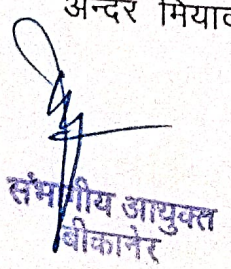 अन्दर मियाद
संभागीय आयुक्त
बीकानेर